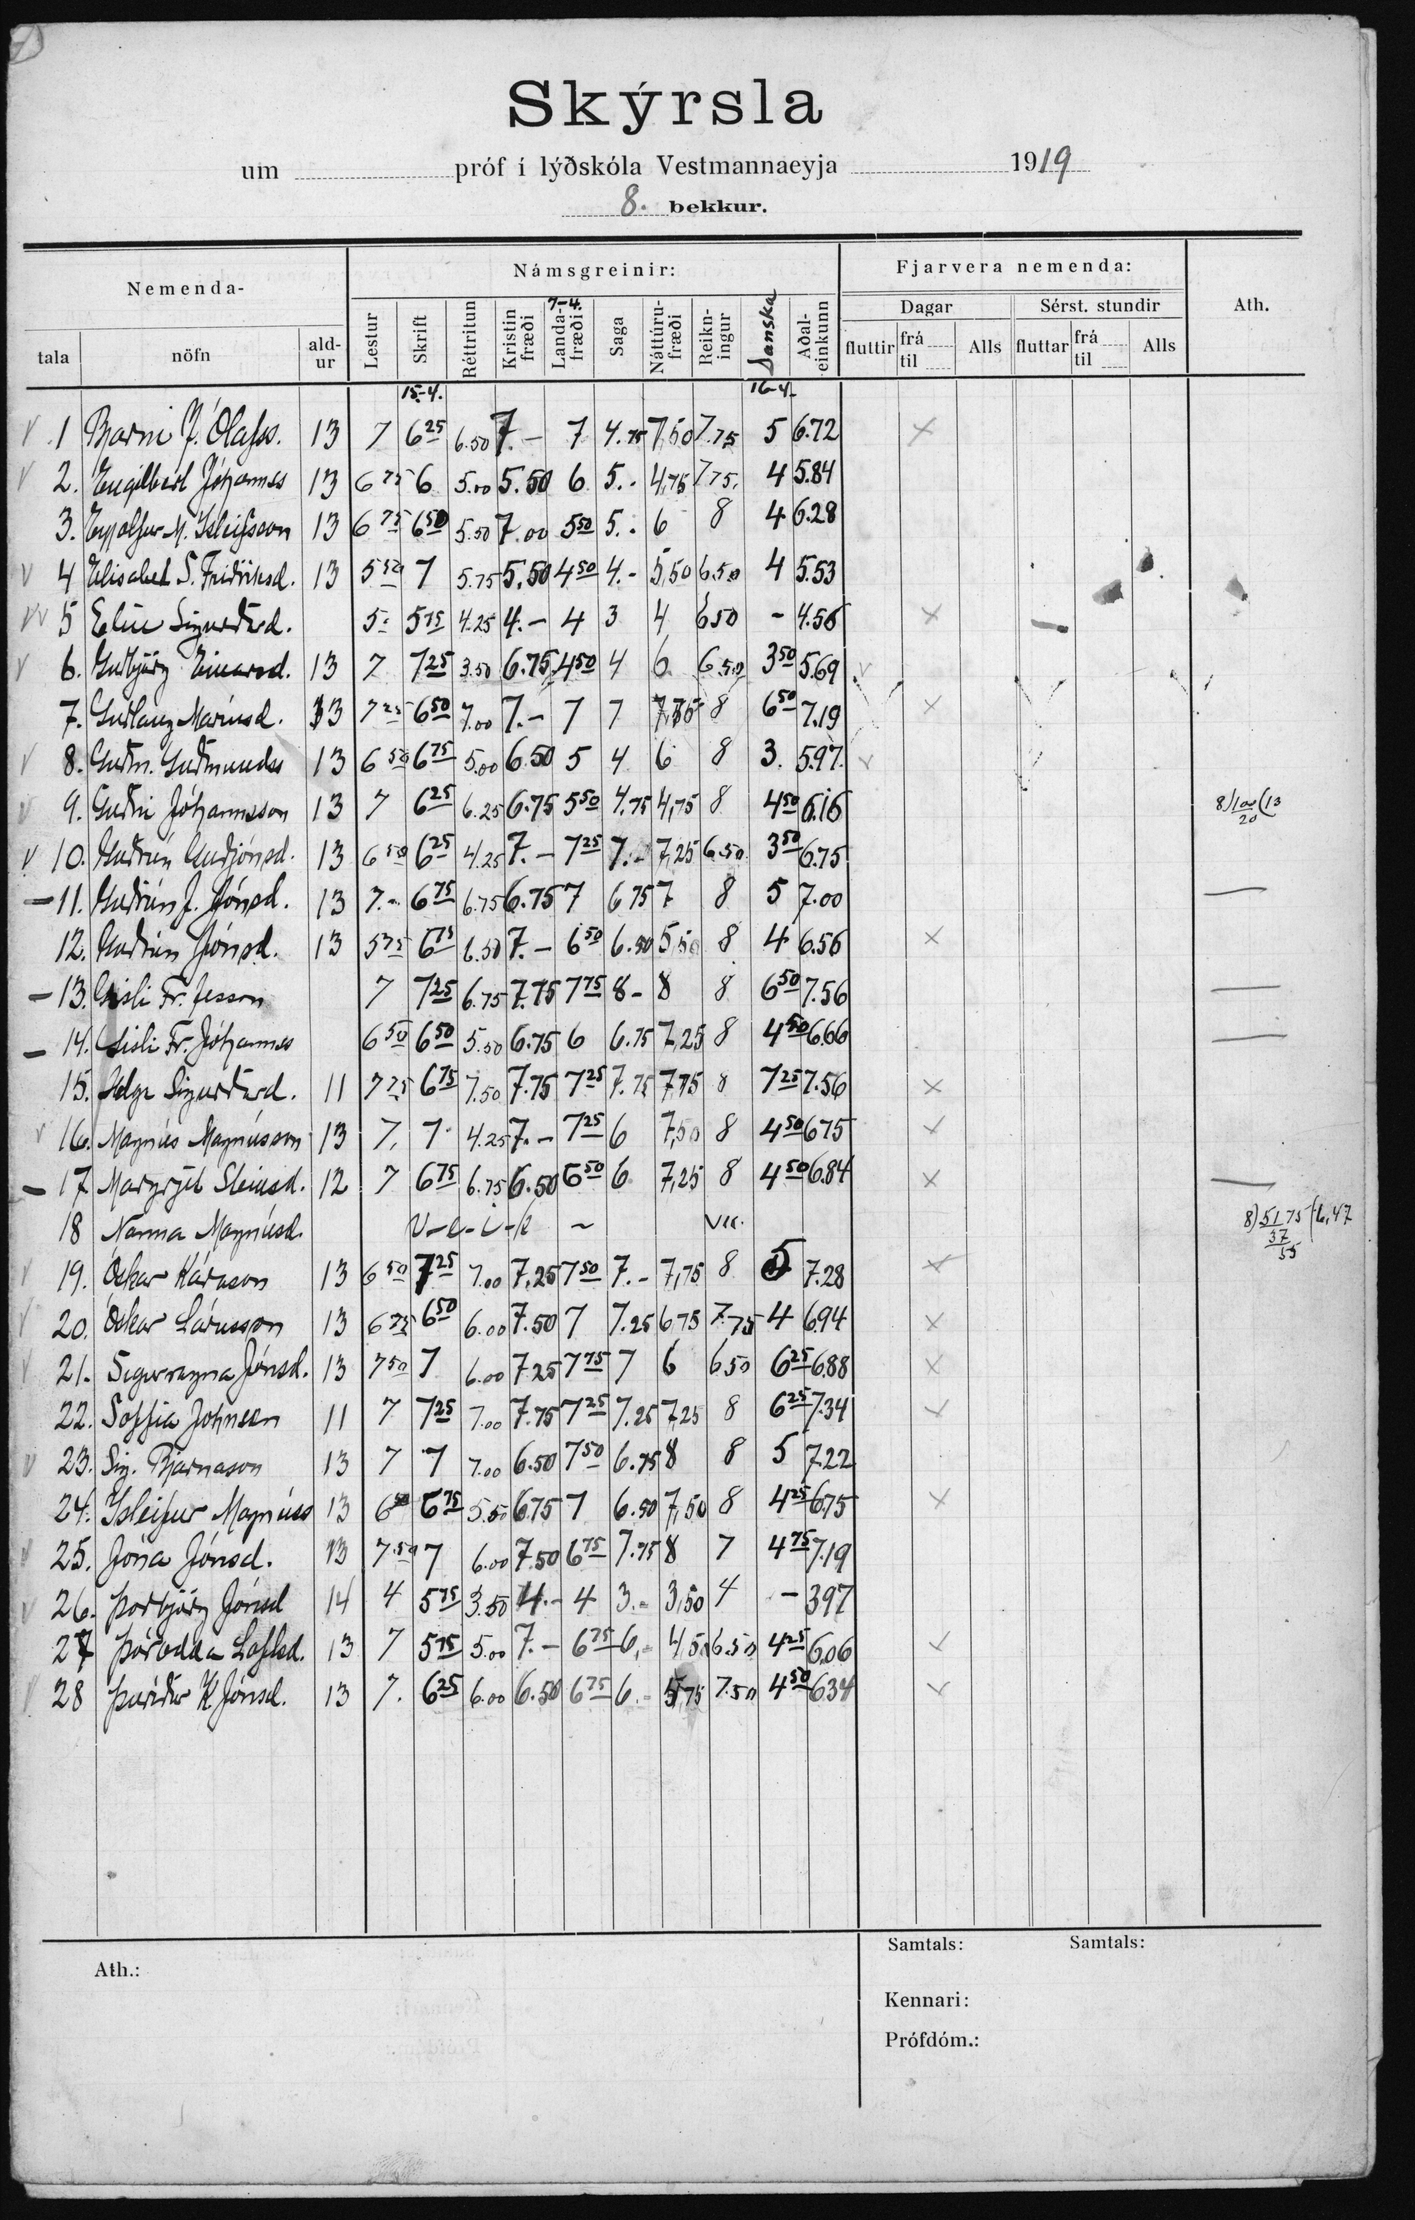 Skýrsla
um próf í lýðskóla Vestmannaeyja 1919
8. bekkur.
Nemenda- Námsgreinir: Fjarvera nemenda: Ath.
Dagar Sérst. stundir
tala nöfn ald-ur Lestur Skrift Réttritun Kristin fræði Landa-fræði Saga Náttúru-fræði Reikn-ingur Danska Aðal-einkunn fluttir frá til Alls fluttar frá til Alls
7-4.
15-4. 16-4.
1 Bjarni J. Ólafss. 13 7 6 25 6.50 7.- 7 4.75 7,50 7.75 5 6.72
2. Engilbert Jóhannes 13 6 75 6 5.00 5.50 6 5.- 4,75 7 75. 4 5.84
3. Eyjólfur M. Ísleifsson 13 6 75 6 50 5.50 7.00 5 50 5.- 6 8 4 6.28
4 Elisabet S. Fridriksd. 13 5 50 7 5.75 5.50 4 50 4.- 5,50 6.50 4 5.53
5 Elín Sigurðard. 5.- 5 75 4.25 4.- 4 3 4 6 50 - 4.56
6. Guðbjörg Einarsd. 13 7 7 25 3.50 6.75 4 50 4 6 6 50 3 50 5.69
7. Guðlaug Maríusd. 13 7 25 6 50 7.00 7.- 7 7 8 6 50 7.19
8. Guðm. Guðmundss 13 6 50 6 75 5.00 6.50 5 4 6 8 3. 5.97
9. Guðni Jóhannsson 13 7 6 25 6.25 6.75 5 50 4.75 4,75 8 4 50 6.16 8)100(13
20
10. Guðrún Guðjónsd. 13 6 50 6 25 4.25 7.- 7 25 7.- 7,25 6.50 3 50 6.75
11. Guðrún J. Jónsd. 13 7.- 6 75 6.75 6.75 7 6 75 7 8 5 7.00
12. Guðrún Jónsd. 13 5 75 6 75 6.50 7.- 6 50 6.50 5,50 8 4 6.56
13. Gísli Fr. Jesson 7 7 25 6.75 7.75 7 75 8- 8 8 6 50 7.56
14. Gísli Fr. Jóhannes 6 50 6 50 5.50 6.75 6 6.75 7,25 8 4 50 6.66
15. Helga Sigurðard. 11 7 25 6 75 7.50 7.75 7 25 7.75 7,75 8 7 25 7.56
16. Magnús Magnússon 13 7. 7 4.25 7.- 7 25 6 7,50 8 4 50 6 75
17. Margrjet Steinsd. 12 7 6 75 6.75 6.50 6 50 6 7,25 8 4 50 6.84
18 Nanna Magnúsd. v-e-i-k ~ 8) 51 75 (6,47
37
55
19. Óskar Kárason 13 6 50 7 25 7.00 7,25 7 50 7.- 7,75 8 5 7.28
20. Óskar Lárusson 13 6 75 6 50 6.00 7.50 7 7.25 6,75 7.75 4 6.94
21. Sigurragna Jónsd. 13 7 50 7 6.00 7.25 7 75 7 6 6 50 6 25 6.88
22. Soffía Johnsen 11 7 7 25 7.00 7.75 7 25 7.25 7,25 8 6 25 7.34
23. Sig. Bjarnason 13 7 7 7.00 6.50 7 50 6.75 8 8 5 7.22
24. Ísleifur Magnúss 13 6 50 6 75 5.50 6.75 7 6.50 7,50 8 4 25 6.75
25. Jóna Jónsd. 13 7.50 7 6.00 7.50 6 75 7.75 8 7 4 75 7.19
26. Þorbjörg Jónsd 14 4 5 75 3.50 4.- 4 3.- 3,50 4 - 3 97
27 Þórodda Loftsd. 13 7 5 75 5.00 7.- 6 75 6.- 4,50 6.50 4 25 6.06
28 Þuríður K Jónsd. 13 7. 6 25 6.00 6.50 6 75 6.- 5,75 7.50 4 50 6 34
Samtals: Samtals:
Ath.:
Kennari:
Prófdóm.: